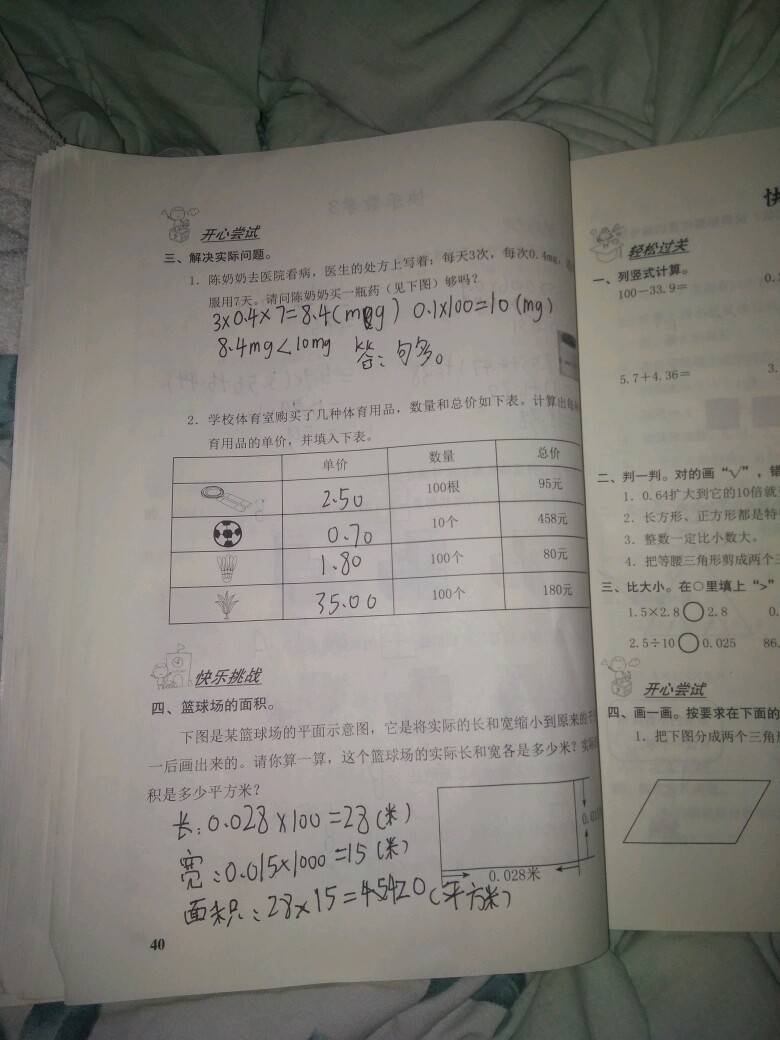 开心尝试
三、解决实际问题。
1. 陈奶奶去医院看病，医生的处方上写着：每天3次，每次0.4mg，
服用7天。请问陈奶奶买一瓶药（见下图）够吗？
3×0.4×7=8.4(mg) 0.1×100=10(mg)
8.4mg<10mg 答：够。
2. 学校体育室购买了几种体育用品，数量和总价如下表。计算出每
育用品的单价，并填入下表。
单价 数量 总价
2.50 100根 95元
0.70 10个 458元
1.80 100个 80元
35.00 100个 180元
快乐挑战
四、篮球场的面积。
下图是某篮球场的平面示意图，它是将实际的长和宽缩小到原来的千
一后画出来的。请你算一算，这个篮球场的实际长和宽各是多少米？实际
积是多少平方米？
长：0.028×100=28(米)
宽：0.015×1000=15(米)
面积：28×15=420(平方米)
0.01
0.028米
40
快
轻松过关
一、列竖式计算。
100－33.9＝ 0.
5.7＋4.36＝ 3.
二、判一判。对的画“√”，错
1. 0.64扩大到它的10倍就
2. 长方形、正方形都是特
3. 整数一定比小数大。
4. 把等腰三角形剪成两个三
三、比大小。在○里填上“>”
1.5×2.8○2.8 0.
2.5÷10○0.025 86.
开心尝试
四、画一画。按要求在下面的
1. 把下图分成两个三角形